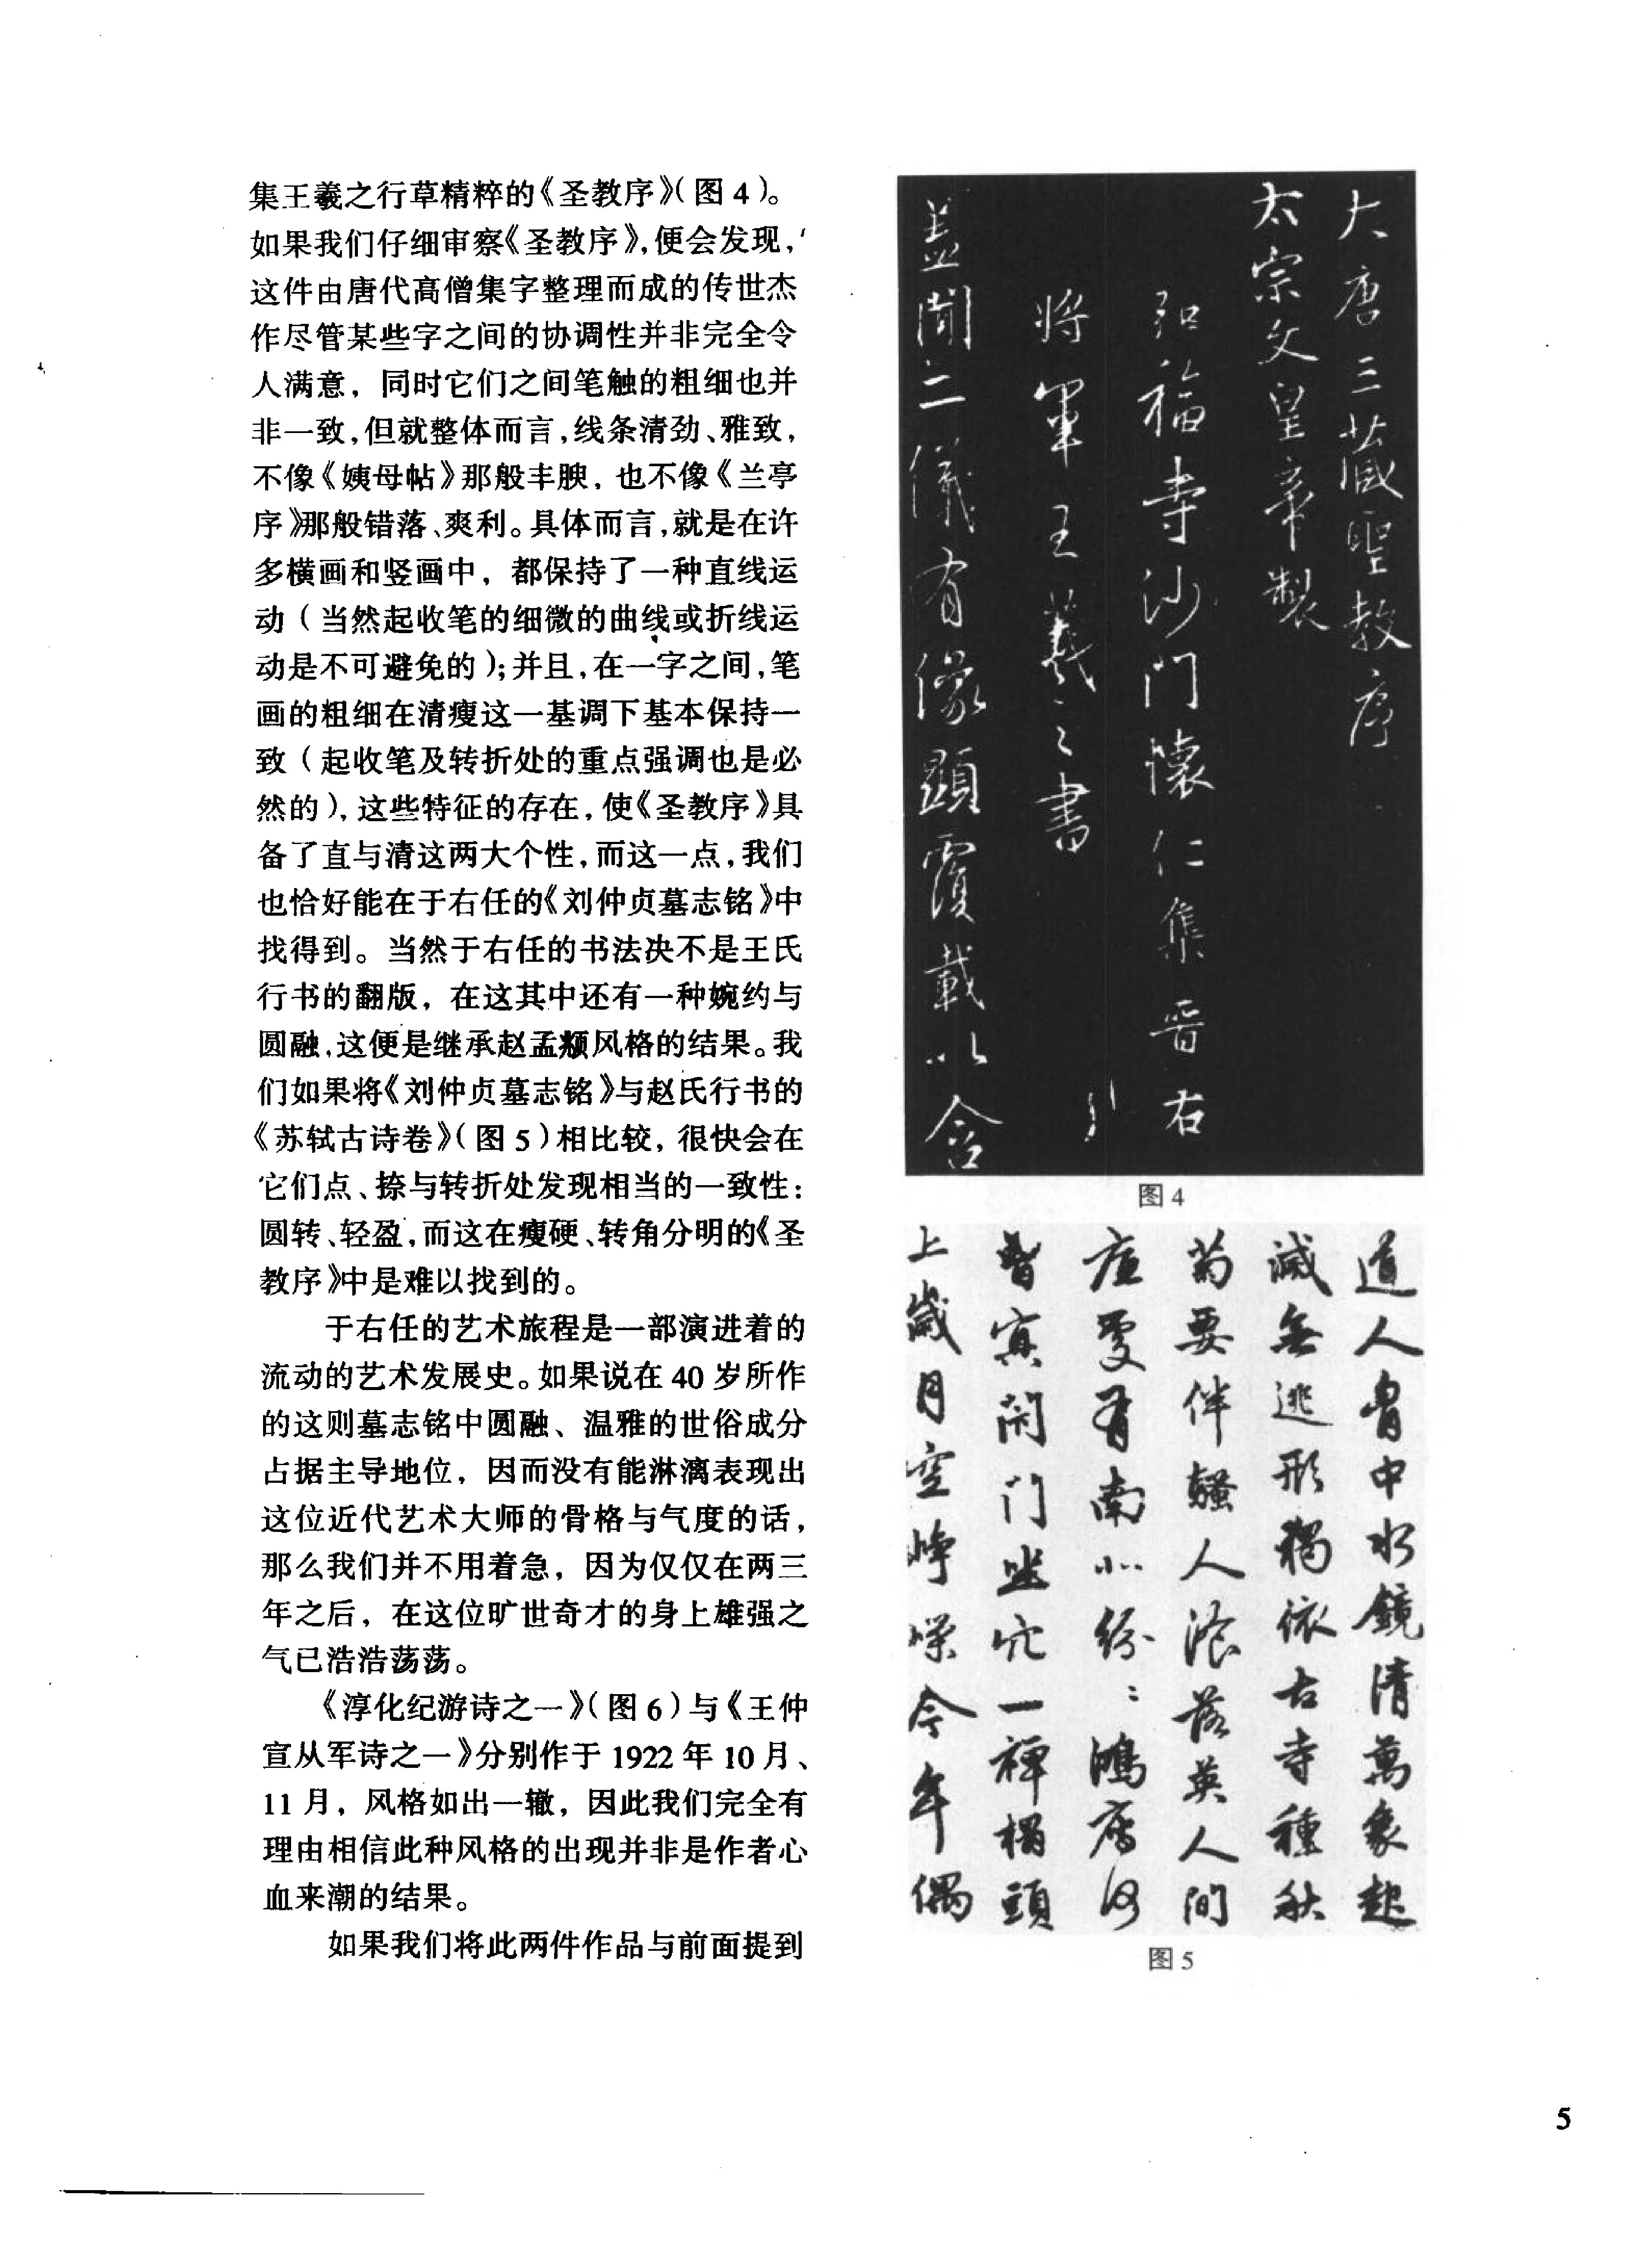 集王羲之行草精粹的《圣教序》（图 4）。
如果我们仔细审察《圣教序》，便会发现，
这件由唐代高僧集字整理而成的传世杰
作尽管某些字之间的协调性并非完全令
人满意，同时它们之间笔触的粗细也并
非一致，但就整体而言，线条清劲、雅致，
不像《姨母帖》那般丰腴，也不像《兰亭
序》那般错落、爽利。具体而言，就是在许
多横画和竖画中，都保持了一种直线运
动（当然起收笔的细微的曲线或折线运
动是不可避免的）；并且，在一字之间，笔
画的粗细在清瘦这一基调下基本保持一
致（起收笔及转折处的重点强调也是必
然的），这些特征的存在，使《圣教序》具
备了直与清这两大个性，而这一点，我们
也恰好能在于右任的《刘仲贞墓志铭》中
找得到。当然于右任的书法决不是王氏
行书的翻版，在这其中还有一种婉约与
圆融，这便是继承赵孟頫风格的结果。我
们如果将《刘仲贞墓志铭》与赵氏行书的
《苏轼古诗卷》（图 5）相比较，很快会在
它们点、捺与转折处发现相当的一致性：
圆转、轻盈，而这在瘦硬、转角分明的《圣
教序》中是难以找到的。
于右任的艺术旅程是一部演进着的
流动的艺术发展史。如果说在 40 岁所作
的这则墓志铭中圆融、温雅的世俗成分
占据主导地位，因而没有能淋漓表现出
这位近代艺术大师的骨格与气度的话，
那么我们并不用着急，因为仅仅在两三
年之后，在这位旷世奇才的身上雄强之
气已浩浩荡荡。
《淳化纪游诗之一》（图 6）与《王仲
宣从军诗之一》分别作于 1922 年 10 月、
11 月，风格如出一辙，因此我们完全有
理由相信此种风格的出现并非是作者心
血来潮的结果。
如果我们将此两件作品与前面提到
大唐三藏聖教序
太宗文皇帝製
弘福寺沙門懷仁集晉右
將軍王羲之書
蓋聞二儀有像顯覆載以含
图 4
道人胷中水鏡清萬象起
滅無逃形獨依古寺種秋
菊要伴騷人飡落英人間
底處有南北紛〻鴻雁何
曾寘閉門坐穴一禪榻頭
上歲月空崢嶸今年偶
图 5
5